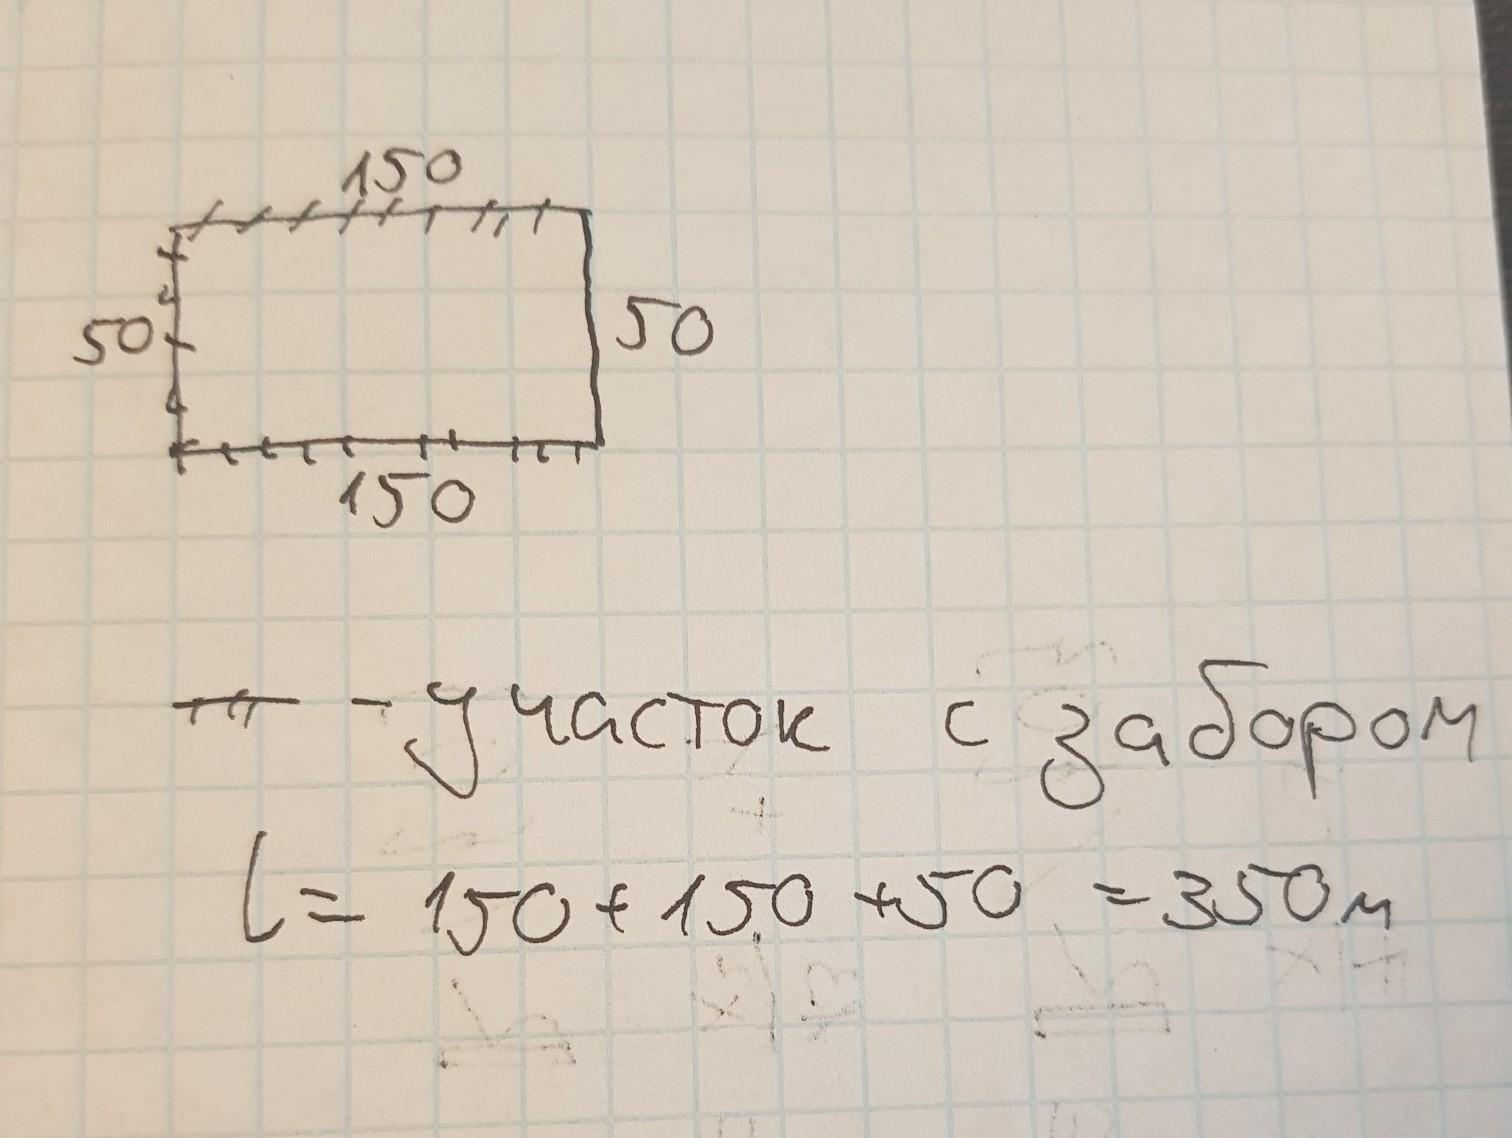 150
50
50
150
- участок с забором
l = 150 + 150 + 50 = 350м